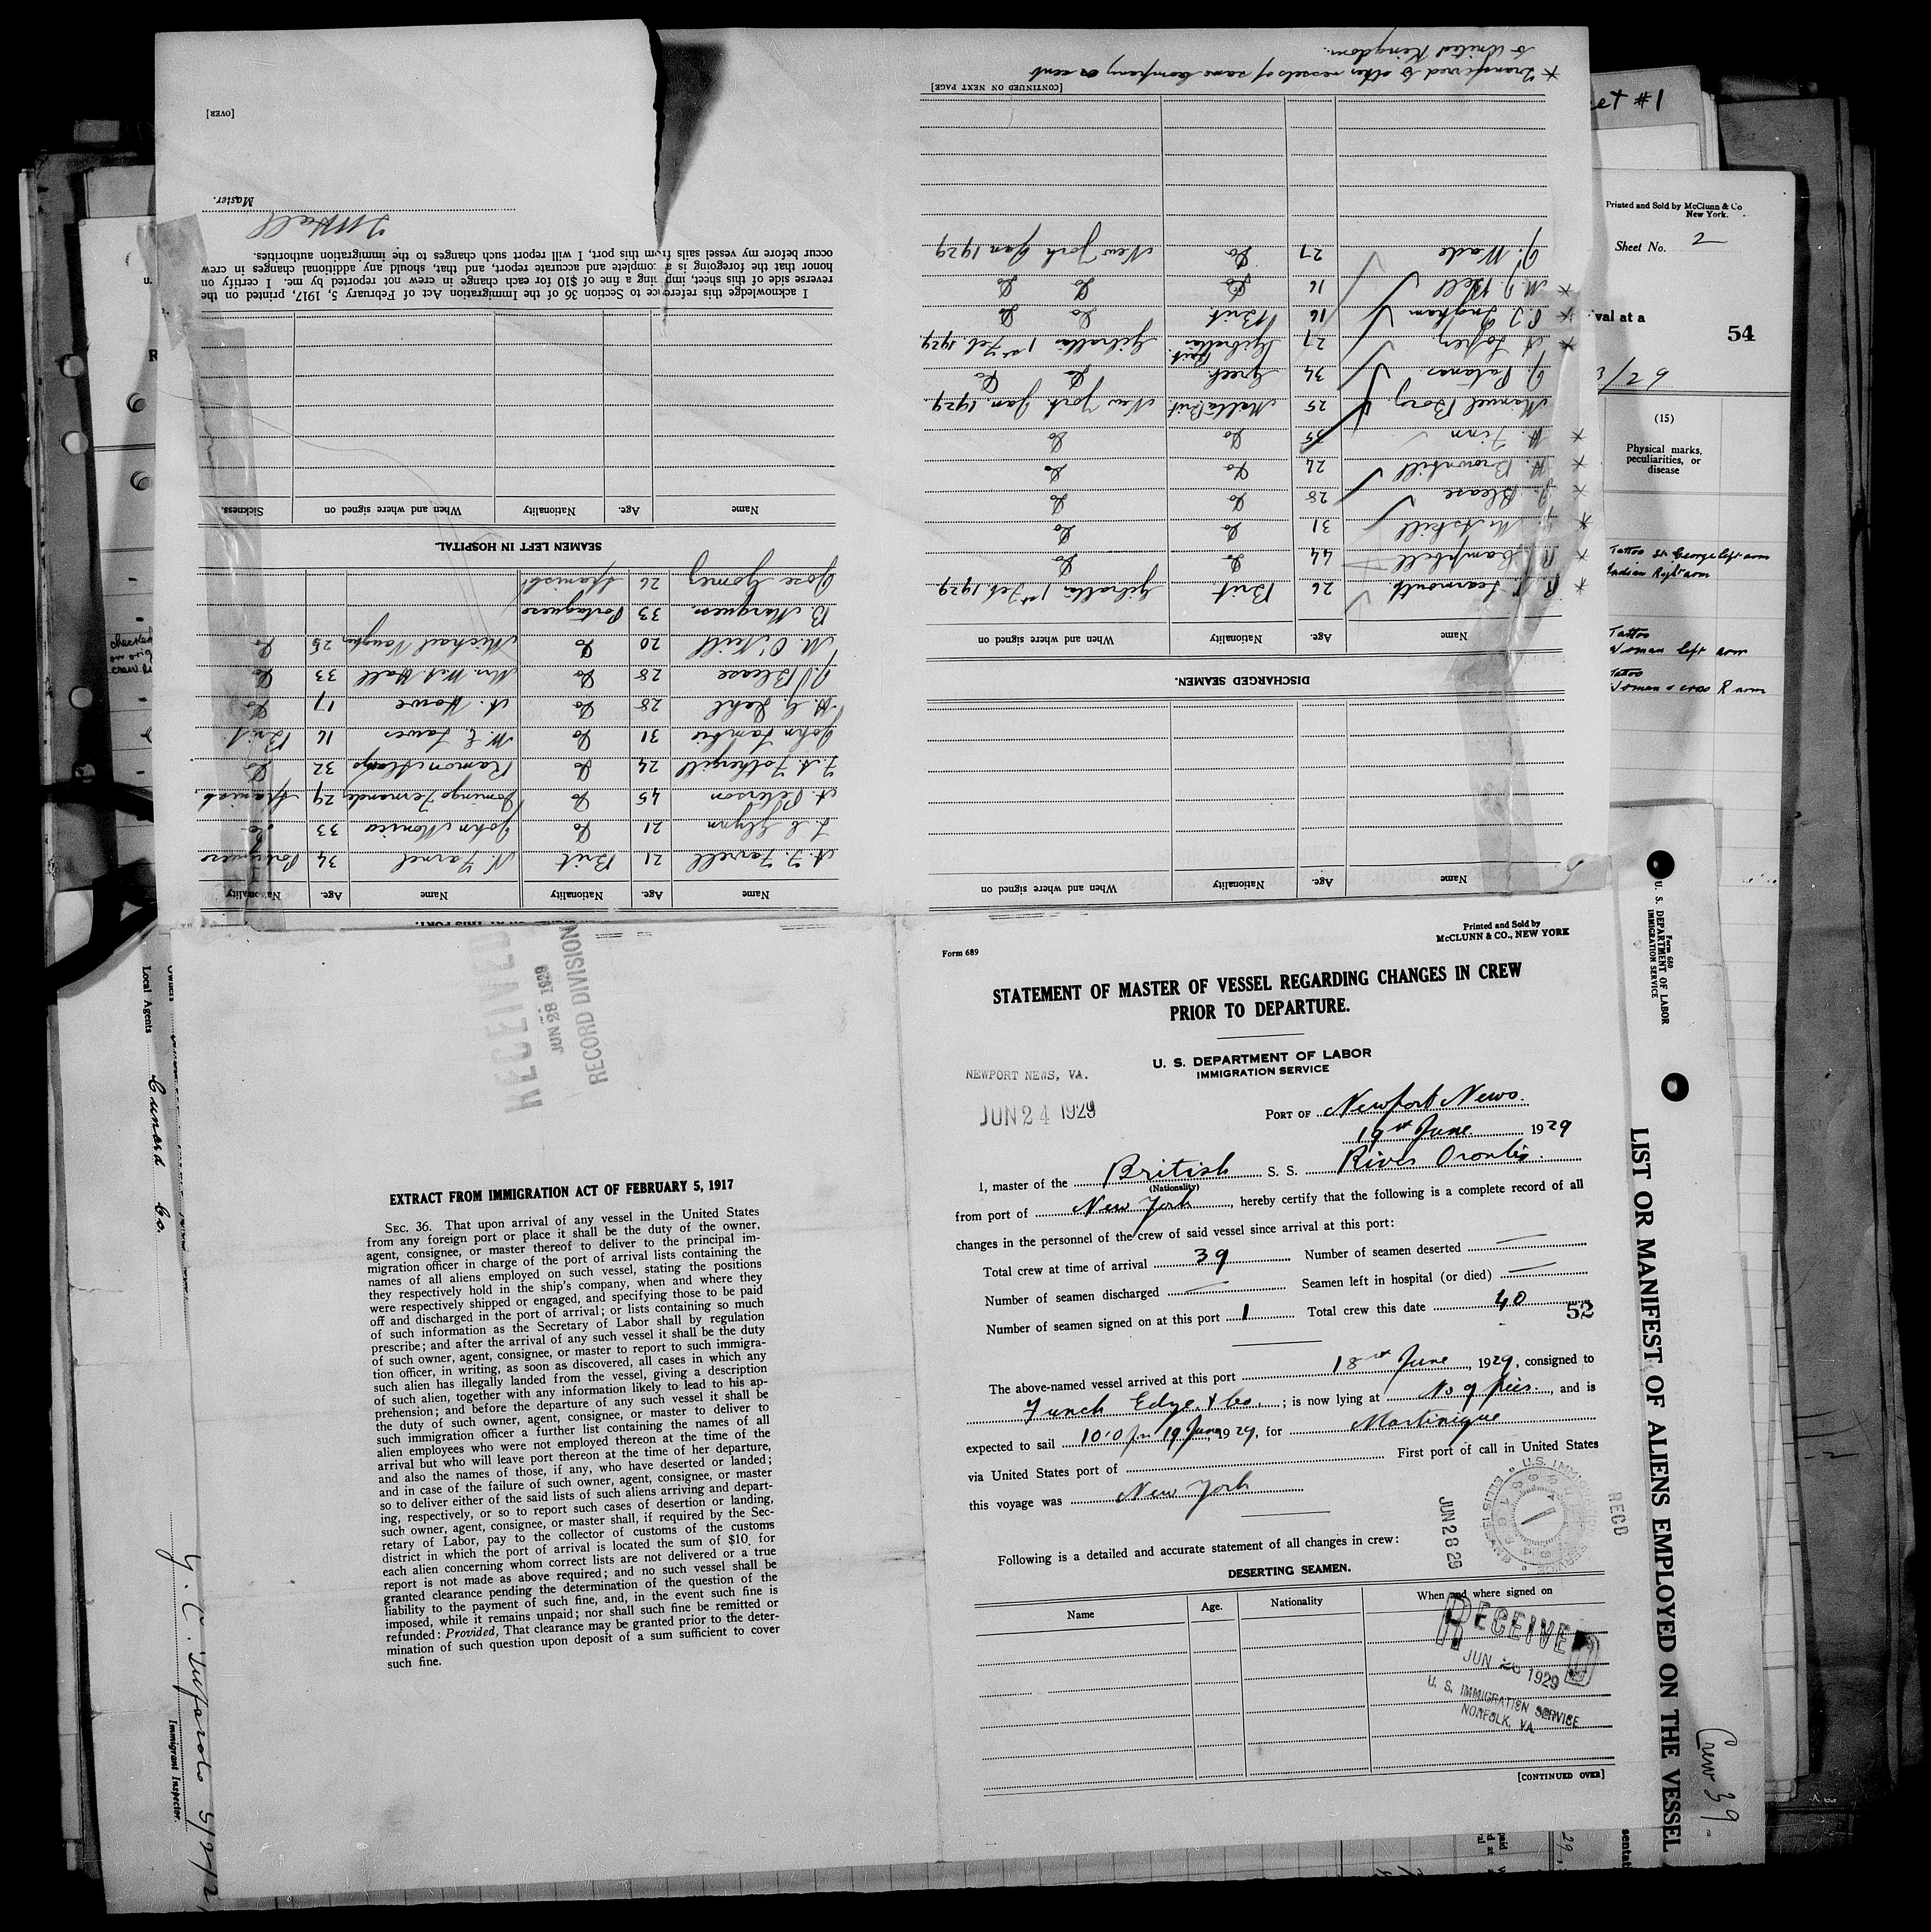 Form 689
Printed and Sold by
McCLUNN & CO., NEW YORK
STATEMENT OF MASTER OF VESSEL REGARDING CHANGES IN CREW
PRIOR TO DEPARTURE.
U. S. DEPARTMENT OF LABOR
IMMIGRATION SERVICE
NEWPORT NEWS, VA.
JUN 24 1929
PORT OF Newport News.
19st June 1929
I, master of the British S. S. River Orontes.
(Nationality)
from port of New York, hereby certify that the following is a complete record of all
changes in the personnel of the crew of said vessel since arrival at this port:
Total crew at time of arrival 39 Number of seamen deserted —
Number of seamen discharged — Seamen left in hospital (or died) —
Number of seamen signed on at this port 1 Total crew this date 40
52
The above-named vessel arrived at this port 18st June, 1929, consigned to
Funch Edye & Co. ; is now lying at No 9 pier, and is
expected to sail 10.0 pm 19 June 1929, for Martinique
via United States port of First port of call in United States
this voyage was New York
Following is a detailed and accurate statement of all changes in crew:
DESERTING SEAMEN.
Name Age. Nationality When and where signed on
[CONTINUED OVER]
JUN 28 29
RECD
RECEIVED
JUN 26 1929
U. S. IMMIGRATION SERVICE
NORFOLK, VA.
RECEIVED
JUN 28 1929
RECORD DIVISION
EXTRACT FROM IMMIGRATION ACT OF FEBRUARY 5, 1917
SEC. 36. That upon arrival of any vessel in the United States
from any foreign port or place it shall be the duty of the owner,
agent, consignee, or master thereof to deliver to the principal im-
migration officer in charge of the port of arrival lists containing the
names of all aliens employed on such vessel, stating the positions
they respectively hold in the ship's company, when and where they
were respectively shipped or engaged, and specifying those to be paid
off and discharged in the port of arrival; or lists containing so much
of such information as the Secretary of Labor shall by regulation
prescribe; and after the arrival of any such vessel it shall be the duty
of such owner, agent, consignee, or master to report to such immigra-
tion officer, in writing, as soon as discovered, all cases in which any
such alien has illegally landed from the vessel, giving a description
of such alien, together with any information likely to lead to his ap-
prehension; and before the departure of any such vessel it shall be
the duty of such owner, agent, consignee, or master to deliver to
such immigration officer a further list containing the names of all
alien employees who were not employed thereon at the time of the
arrival but who will leave port thereon at the time of her departure,
and also the names of those, if any, who have deserted or landed;
and in case of the failure of such owner, agent, consignee, or master
so to deliver either of the said lists of such aliens arriving and depart-
ing, respectively, or so to report such cases of desertion or landing,
such owner, agent, consignee, or master shall, if required by the Sec-
retary of Labor, pay to the collector of customs of the customs
district in which the port of arrival is located the sum of $10 for
each alien concerning whom correct lists are not delivered or a true
report is not made as above required; and no such vessel shall be
granted clearance pending the determination of the question of the
liability to the payment of such fine, and, in the event such fine is
imposed, while it remains unpaid; nor shall such fine be remitted or
refunded: Provided, That clearance may be granted prior to the deter-
mination of such question upon deposit of a sum sufficient to cover
such fine.
Name Age. Nationality When and where signed on
DISCHARGED SEAMEN.
Name Age. Nationality When and where signed on
* R. Learmouth 26 Brit. Gibraltar 1st Feb. 1929
* R. Campbell 44 Do Do
* McAskill 31 Do Do
* Blease 28 Do Do
* Brownbill 24 Do Do
* Finn 35 Do Do
Manuel Borg 25 Malta Brit. New York Jan. 1929.
Patanos 34 Greek Do
* A Lopez 27 Gibraltar Brit. Gibraltar 1st Feb. 1929.
* Ingham 16 Brit Do
* M. J. Bell 16 Do Do Do
J. Wade 27 Do New York Jan 1929
[CONTINUED ON NEXT PAGE]
* Transferred to other vessels of same company or sent
to United Kingdom.
Name Age. Nationality Name Age. Nationality
A. J. Farrell 21 Brit N. Farnel 34 Portuguese
L C Glynn 21 Do John Monica 33 Do
A Peterson 45 Do Domingo Fernandez 29 Spanish
F. A. Fothergill 24 Do Ramon 32 Do
John Lambie 31 Do W. E. Lawes 16 Brit.
28 Do A. Howe 17 Do
J. Blease 28 Do Mrs. W. A. Hall 33 Do
M. O'Neill 20 Do Michael Vaughan 25 Do
B. Marquess 33 Portuguese
Jose Gomez 26 Spanish
SEAMEN LEFT IN HOSPITAL
Name Age. Nationality When and where signed on Sickness.
I acknowledge this reference to Section 36 of the Immigration Act of February 5, 1917, printed on the
reverse side of this sheet, imposing a fine of $10 for each change in crew not reported by me. I certify on
honor that the foregoing is a complete and accurate report, and that, should any additional changes in crew
occur before my vessel sails from this port, I will report such changes to the immigration authorities.
Hall
Master.
[OVER]
#1
Printed and Sold by McClunn & Co
New York.
Sheet No. 2
val at a
54
(15)
Physical marks,
peculiarities, or
disease
Tattoo St George left arm
Indian Right arm
Tattoo
Woman left arm
Tattoo
Woman & cross R arm
Form 680
U. S. DEPARTMENT OF LABOR
IMMIGRATION SERVICE
LIST OR MANIFEST OF ALIENS EMPLOYED ON THE VESSEL
Crew 39
Owners
Local Agents Cunard Co.
Immigrant Inspector.